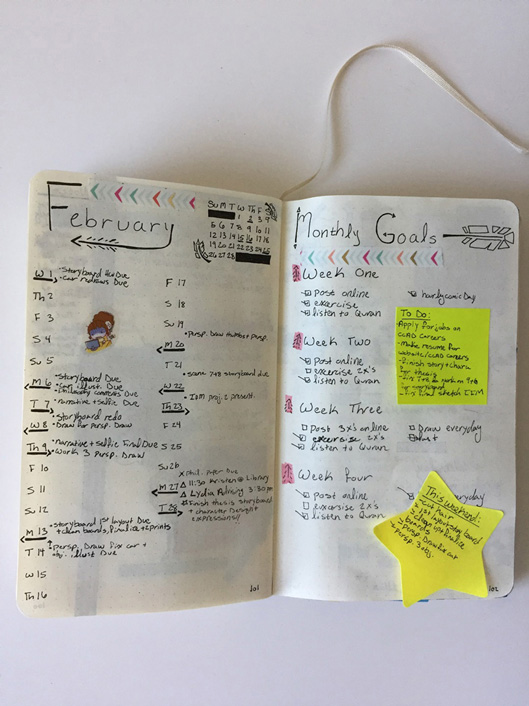 February
Su M T W Th F S
1 2 3 4
5 6 7 8 9 10 11
12 13 14 15 16 17 18
19 20 21 22 23 24 25
26 27 28
W 1 Storyboard Due
Due
Th 2
F 3
S 4
Su 5
M 6 Storyboard Due
illust. Due
Due
T 7 narrative + selfie Due
storyboard redo
W 8 Draw for persp. Draw
Th 9 narrative + selfie Final Due
Work 3 Persp. Draw
F 10
S 11
Su 12
M 13 Storyboard 1st layout Due
+ clean boards, finalize + prints
T 14 persp. Draw fix car +
illust Due
W 15
Th 16
F 17
S 18
Su 19
persp. Draw persp.
M 20
T 21
storyboard due
W 22
Th 23 proj. 2 present.
F 24
S 25
Su 26
Paper Due
M 27 11:30 Kristen @ Library
Lydia Advising 3:30 pm
T 28 Finish thesis storyboard
+ character Design +
expressions!
101
Monthly Goals
Week One
post online
exercise
listen to Quran
hourly comic Day
Week Two
post online
exercise 2x's
listen to Quran
Week Three
post 3x's online
exercise 2x's
listen to Quran
Draw everyday
Week Four
post online
exercise 2x's
listen to Quran
everyday
To Do:
Apply for jobs on
CCAD careers
- Make resume for
website/CCAD careers
- Finish story + chara
for thesis
This weekend:
1st layout story board
Persp. Draw fix car
Persp. 3 +
102